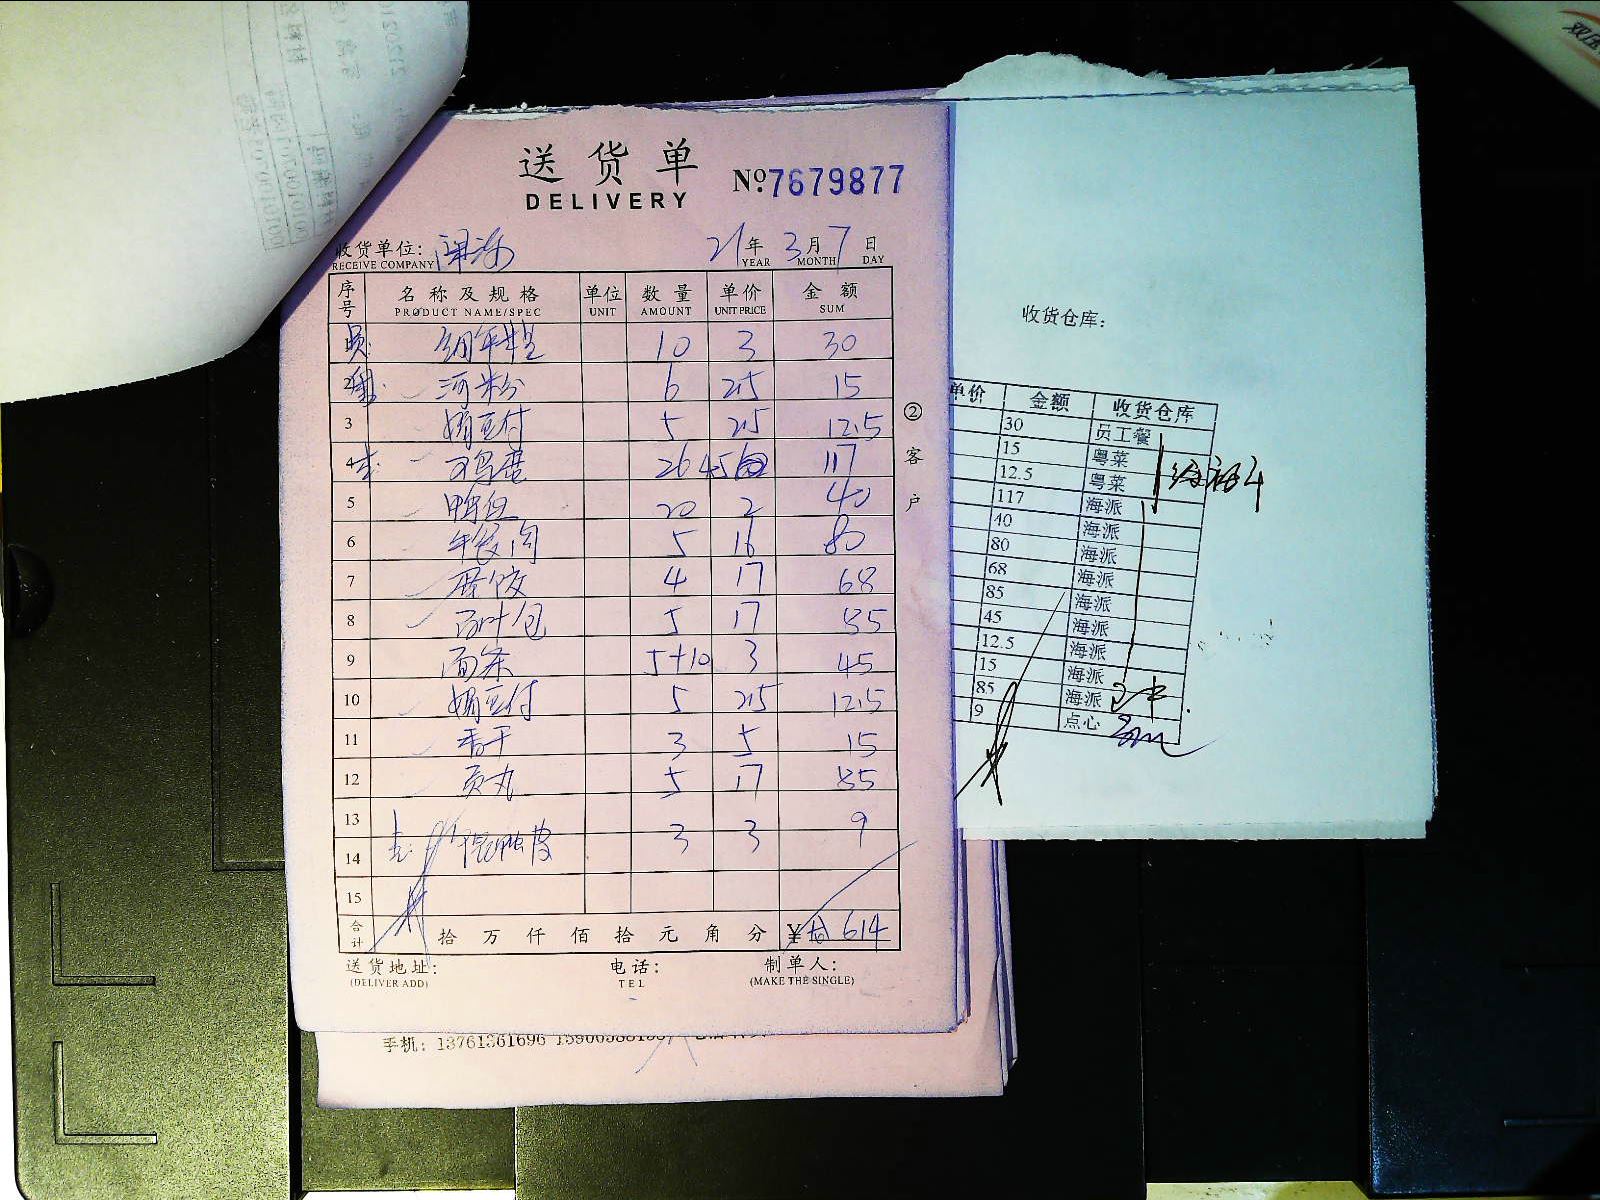 送货单
DELIVERY
Nº 7679877
收货单位:
RECEIVE COMPANY
21年 3月 7日
YEAR MONTH DAY
序号 名称及规格 单位 数量 单价 金额
PRODUCT NAME/SPEC UNIT AMOUNT UNIT PRICE SUM
10 3 30
2 河粉 6 2.5 15
3 豆付 5 2.5 12.5
4 26 4.5 117
5 鸭血 20 2 40
6 午餐肉 5 16 80
7 蛋饺 4 17 68
8 百叶包 5 17 85
9 面条 5+10 3 45
10 豆付 5 2.5 12.5
11 香干 3 5 15
12 贡丸 5 17 85
13
14 馄饨皮 3 3 9
15
合计 拾 万 仟 佰 拾 元 角 分 ¥ 614
送货地址: 电话: 制单人:
(DELIVER ADD) TEL (MAKE THE SINGLE)
② 客户
手机: 13761361696
收货仓库:
单价 金额 收货仓库
30 员工餐
15 粤菜
12.5 粤菜
117 海派
40 海派
80 海派
68 海派
85 海派
45 海派
12.5 海派
15 海派
85 海派
9 点心